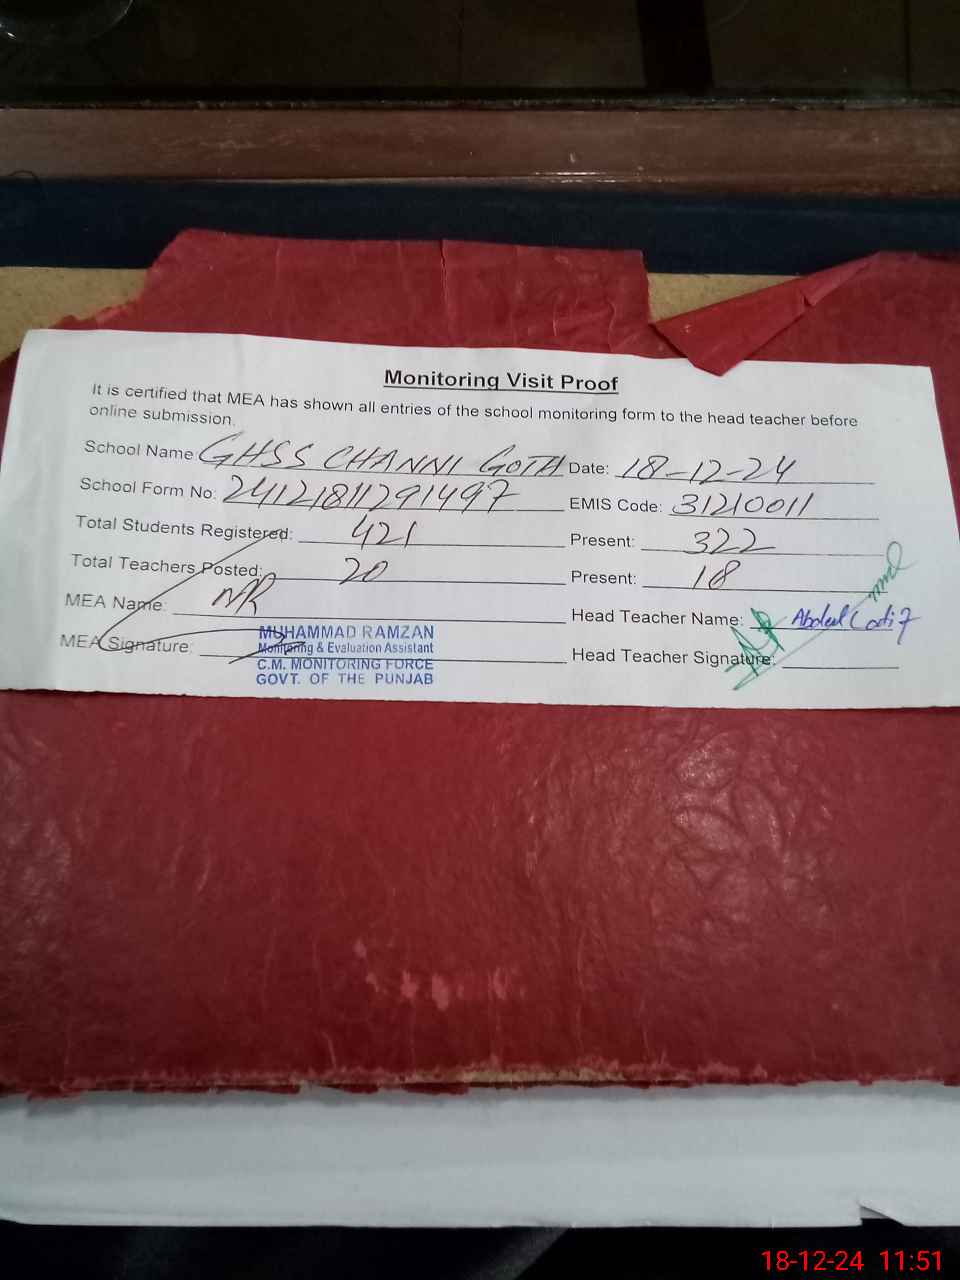 Monitoring Visit Proof
It is certified that MEA has shown all entries of the school monitoring form to the head teacher before
online submission.
School Name GHSS CHANNI GOTH Date: 18-12-24
School Form No: 24121811291497 EMIS Code: 31210011
Total Students Registered: 421 Present: 322
Total Teachers Posted: 20 Present: 18
MEA Name: MR Head Teacher Name: Abdul
MEA Signature: Head Teacher Signature:
MUHAMMAD RAMZAN
Monitoring & Evaluation Assistant
C.M. MONITORING FORCE
GOVT. OF THE PUNJAB
18-12-24 11:51